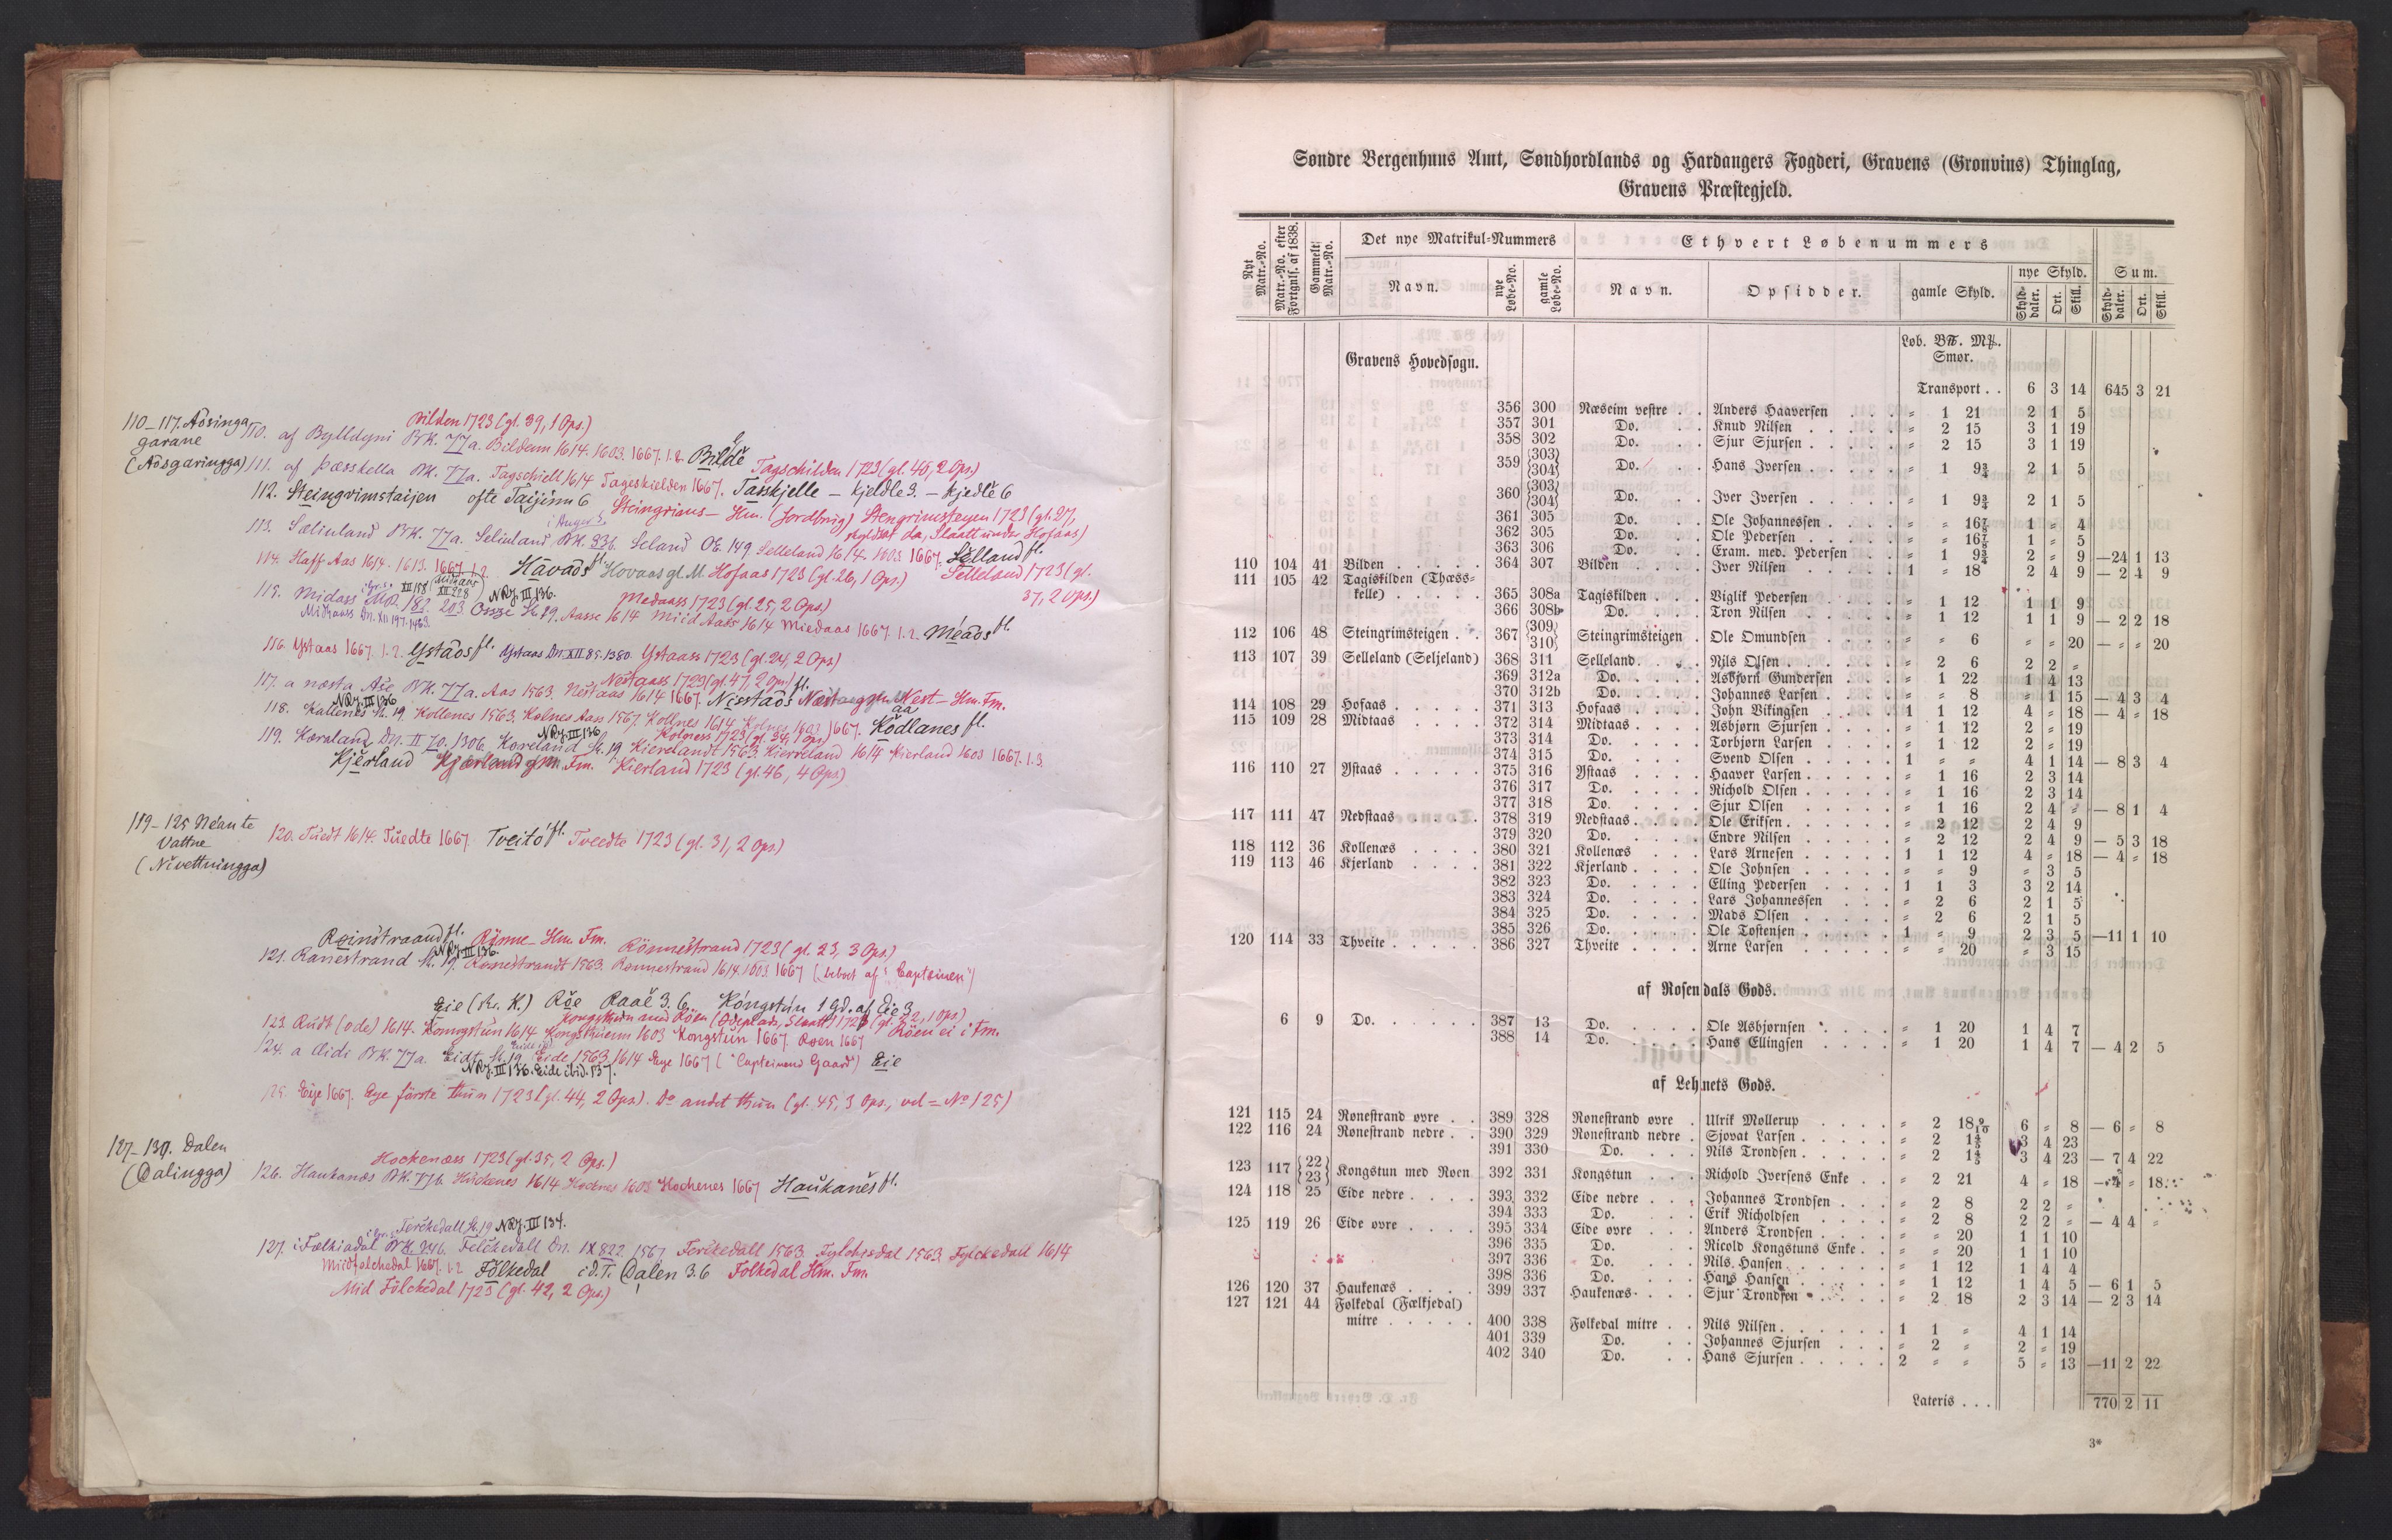 110–117. Aosinga
garane
(Aosgaringga)
Bilden 1723 (gl. 39, 1 Ops.)
110. af Bylldyni BK. 77a. Bildenn 1614. 1603. 1667. 1.2. Bilde
111. af Þæsskella BK. 77a. Tagschiell 1614 Tageskielden 1667. Tasskjelle – kjeldle 3. – kjedle 6
Tagschilden 1723 (gl. 45, 2 Ops.)
112. Steingrimstaijen ofte Taijinn 6 Steingrims– Hm. (Jordbrug) Stengrimsteyen 1723 (gl. 27,
skyldsat da, Slaatt under Hofaas)
113. Sæliuland BK. 77a. Seliuland BK. 236. Seland OE. 149 Selleland 1614. 1603 1667. Selland fl.
Selleland 1723 (gl.
37, 2 Ops.)
114. Haff Aas 1614. 1613. 1667. 1.2. Håvaos fl. Hovaas gl. M. Hofaas 1723 (gl. 26, 1 Ops.)
NRJ. III 136.
Medaass 1723 (gl. 25, 2 Ops.)
115. Midass 203 Aasse 1614 Miid Aass 1614 Miedaas 1667. 1.2. Meaos fl.
Dn. XII 197. 1463.
116. Ystaas 1667. 1.2. Ystaos fl. Ystaas Dn. XII 85. 1380. Ystaass 1723 (gl. 24, 2 Ops.)
Nestaass 1723 (gl. 47, 2 Ops.)
117. a næsta Ase BK. 77a. Aas 1563. Nestaas 1614 1667. Nisstaos fl. Nest– Hm. Fm.
NRJ. III 136
118. Kallenes St. 19. Kollenes 1563. Kolnes Aass 1567. Kollnes 1614 Kolnes 1603 1667. Kodlanes fl.
Kolness 1723 (gl. 34, Ops.)
NRJ. III 136
119. Kæraland Dn. II 70. 1306. Kæreland St. 19 Kierelandt 1563. Kierreland 1614 Kierland 1603 1667. 1.3.
Kjerland Kjærland gl. M. Fm. Kierland 1723 (gl. 46, 4 Ops.)
119–125 Néante
Vattne
(Nivettningga)
120. Tuedt 1614. Tuedte 1667. Tveito fl. Tveedte 1723 (gl. 31, 2 Ops.)
Roinstraand fl. Rönne– Hm. Fm. Rönnestrand 1723 (gl. 23, 3 Ops.)
NRJ. III 136.
121. Ranestrand St. 19. Rönnestrandt 1563. Ronnestrand 1614. 1603. 1667 (beboet af "Capteinen")
Eie (St. K.) Röe Raae 3. 6. Kóngstún 1 Gd. af Eie 3
Kongsthun med Röen (Ödeplads, Slaatt) 1723 (gl. 22, 1 Ops.)
123. Rudt (öde) 1614. Konngstun 1614 Kongsthuenn 1603 Kongstun 1667. Roen 1667 Röen ei i Fm.
124. a Æidi BK. 77a. Eidt St. 19 Eide 1563. 1614 Eye 1667 ("Capteinens Gaard") Eie
NRJ. III 136. Eide ibid. 137.
125. Eije 1667. Eye förste thun 1723 (gl. 44, 2 Ops.). Do andet thun (gl. 45, 3 Ops., vel = No 125)
127–130. Dalen
(Dalingga)
Hockenæss 1723 (gl. 35, 2 Ops.)
126. Haukanæs BK. 77b. Huckenes 1614 Hocknes 1603 Hochenes 1667 Haukanes fl.
Ferckedall St. 19 NRJ. III 134.
127. i Fælkiadal BK. 236. Felckedall Dn. IX 822 1567 Ferckedall 1563. Fylchisdal 1563. Fylckedall 1614
Midfolchedal 1667. 1.2 Fölkedal i d. T. (Dalen 3. 6 Folkedal Hm. Fm.
Mid Fölckedal 1723 (gl. 42, 2 Ops.)
Søndre Bergenhuus Amt, Søndhordlands og Hardangers Fogderi, Gravens (Gronvins) Thinglag,
Gravens Præstegjeld.
Nyt Matr.-No. | Matr.-No. efter Fortgnls. af 1838. | Gammelt Matr.-No. | Det nye Matrikul-Nummers | Ethvert Løbenummers
Navn. | nye Løbe-No. | gamle Løbe-No. | Navn. | Opsidder. | gamle Skyld. | nye Skyld. | Sum.
Skyld-daler. | Ort. | Skill. | Skyld-daler. | Ort. | Skill.
Gravens Hovedsogn. Løb. B℔. M℔. Smør.
Transport . . 6 3 14 645 3 21
356 300 Næseim vestre . . Anders Haaversen . . . " 1 21 2 1 5
357 301 Do. . . Knud Nilsen . . . " 2 15 3 1 19
358 302 Do. . . Sjur Sjursen . . . " 2 15 3 1 19
359 {303 304} Do. . . Hans Iversen . . . " 1 9¾ 2 1 5
360 {303 304} Do. . . Iver Iversen . . . " 1 9¾ 2 1 5
361 305 Do. . . Ole Johannessen . . . " " 16⅞ 1 " 4
362 305 Do. . . Ole Pedersen . . . " " 16⅞ 1 " 5
363 306 Do. . . Exam. med. Pedersen . . " 1 9¾ 2 " 9 —24 1 13
110 104 41 Bilden . . . 364 307 Bilden . . . Iver Nilsen . . . 1 " 18 2 4 9 — 2 4 9
111 105 42 Tagiskilden (Thæss-
kelle) . . . 365 308a Tagiskilden . . . Viglik Pedersen . . . " 1 12 1 1 9
366 308b Do. . . Tron Nilsen . . . " 1 12 1 1 9 — 2 2 18
112 106 48 Steingrimsteigen . . 367 {309 310} Steingrimsteigen . Ole Omundsen . . . " " 6 " " 20 — " " 20
113 107 39 Selleland (Seljeland) 368 311 Selleland . . . Nils Olsen . . . " 2 6 2 2 "
369 312a Do. . . Asbjørn Gundersen . . . " 1 22 1 4 13
370 312b Do. . . Johannes Larsen . . . " " 8 " 1 15 — 4 3 4
114 108 29 Hofaas . . . 371 313 Hofaas . . . John Vikingsen . . . 1 1 12 4 " 18 — 4 " 18
115 109 28 Midtaas . . . 372 314 Midtaas . . . Asbjørn Sjursen . . . " 1 12 2 " 19
373 314 Do. . . Torbjørn Larsen . . . " 1 12 2 " 19
374 315 Do. . . Svend Olsen . . . 1 " " 4 1 14 — 8 3 4
116 110 27 Ystaas . . . 375 316 Ystaas . . . Haaver Larsen . . . " 1 16 2 3 14
376 317 Do. . . Richold Olsen . . . " 1 16 2 3 14
377 318 Do. . . Sjur Olsen . . . " 1 16 2 4 " — 8 1 4
117 111 47 Nedstaas . . . 378 319 Nedstaas . . . Ole Eriksen . . . " 2 12 2 4 9
379 320 Do. . . Endre Nilsen . . . " 2 12 2 4 9 — 5 3 18
118 112 36 Kollenæs . . . 380 321 Kollenæs . . . Lars Arnesen . . . 1 1 12 4 " 18 — 4 " 18
119 113 46 Kjerland . . . 381 322 Kjerland . . . Ole Johnsen . . . " " 9 " 3 5
382 323 Do. . . Elling Pedersen . . . 1 1 3 3 2 14
383 324 Do. . . Lars Johannessen . . . " 2 6 2 1 5
384 325 Do. . . Mads Olsen . . . " 2 6 2 1 5
385 326 Do. . . Ole Tostensen . . . 1 " 9 2 3 5 —11 1 10
120 114 33 Thveite . . . 386 327 Thveite . . . Arne Larsen . . . " " 20 " 3 15
af Rosendals Gods.
6 9 Do. . . . 387 13 Do. . . Ole Asbjørnsen . . . " 1 20 1 4 7
388 14 Do. . . Hans Ellingsen . . . " 1 20 1 4 7 — 4 2 5
af Lehnets Gods.
121 115 24 Rønestrand øvre . . 389 328 Rønestrand øvre . Ulrik Møllerup . . . " 2 18 9/10 6 " 8 — 6 " 8
122 116 24 Rønestrand nedre . . 390 329 Rønestrand nedre . Sjovat Larsen . . . " 2 1⅘ 3 4 23
391 330 Do. . . Nils Trondsen . . . " 2 1⅘ 3 4 23 — 7 4 22
123 117 {22 23} Kongstun med Roen 392 331 Kongstun . . . Richold Iversens Enke . . " 2 21 4 " 18 — 4 " 18
124 118 25 Eide nedre . . . 393 332 Eide nedre . . . Johannes Trondsen . . . " 2 8 2 2 "
394 333 Do. . . Erik Richoldsen . . . " 2 8 2 2 " — 4 4 "
125 119 26 Eide øvre . . . 395 334 Eide øvre . . . Anders Trondsen . . . " " 20 1 1 10
396 335 Do. . . Ricold Kongstuns Enke . . " " 20 1 1 10
397 336 Do. . . Nils Hansen . . . " 1 12 1 4 4
398 336 Do. . . Hans Hansen . . . " 1 12 1 4 5 — 6 1 5
126 120 37 Haukenæs . . . 399 337 Haukenæs . . . Sjur Trondsen . . . " 2 18 2 3 14 — 2 3 14
127 121 44 Folkedal (Fælkjedal)
mitre . . . 400 338 Folkedal mitre . . Nils Nilsen . . . 1 1 " 4 1 14
401 339 Do. . . Johannes Sjursen . . . " 2 " 2 " 19
402 340 Do. . . Hans Sjursen . . . 2 " " 5 " 13 —11 2 22
Lateris . . . 770 2 11
3*